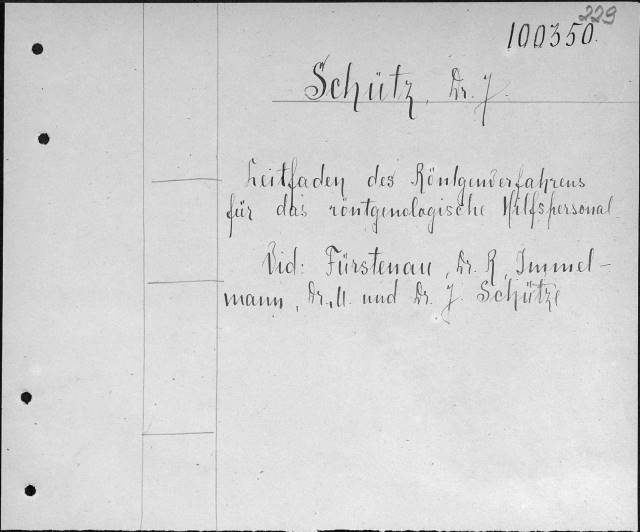 229
100350.
Schütz, Dr. J.
Leitfaden des Röntgenverfahrens
für das röntgenologische Hilfspersonal
Vid: Fürstenau, Dr. R, Immel-
mann, Dr. M. und Dr. J. Schütze